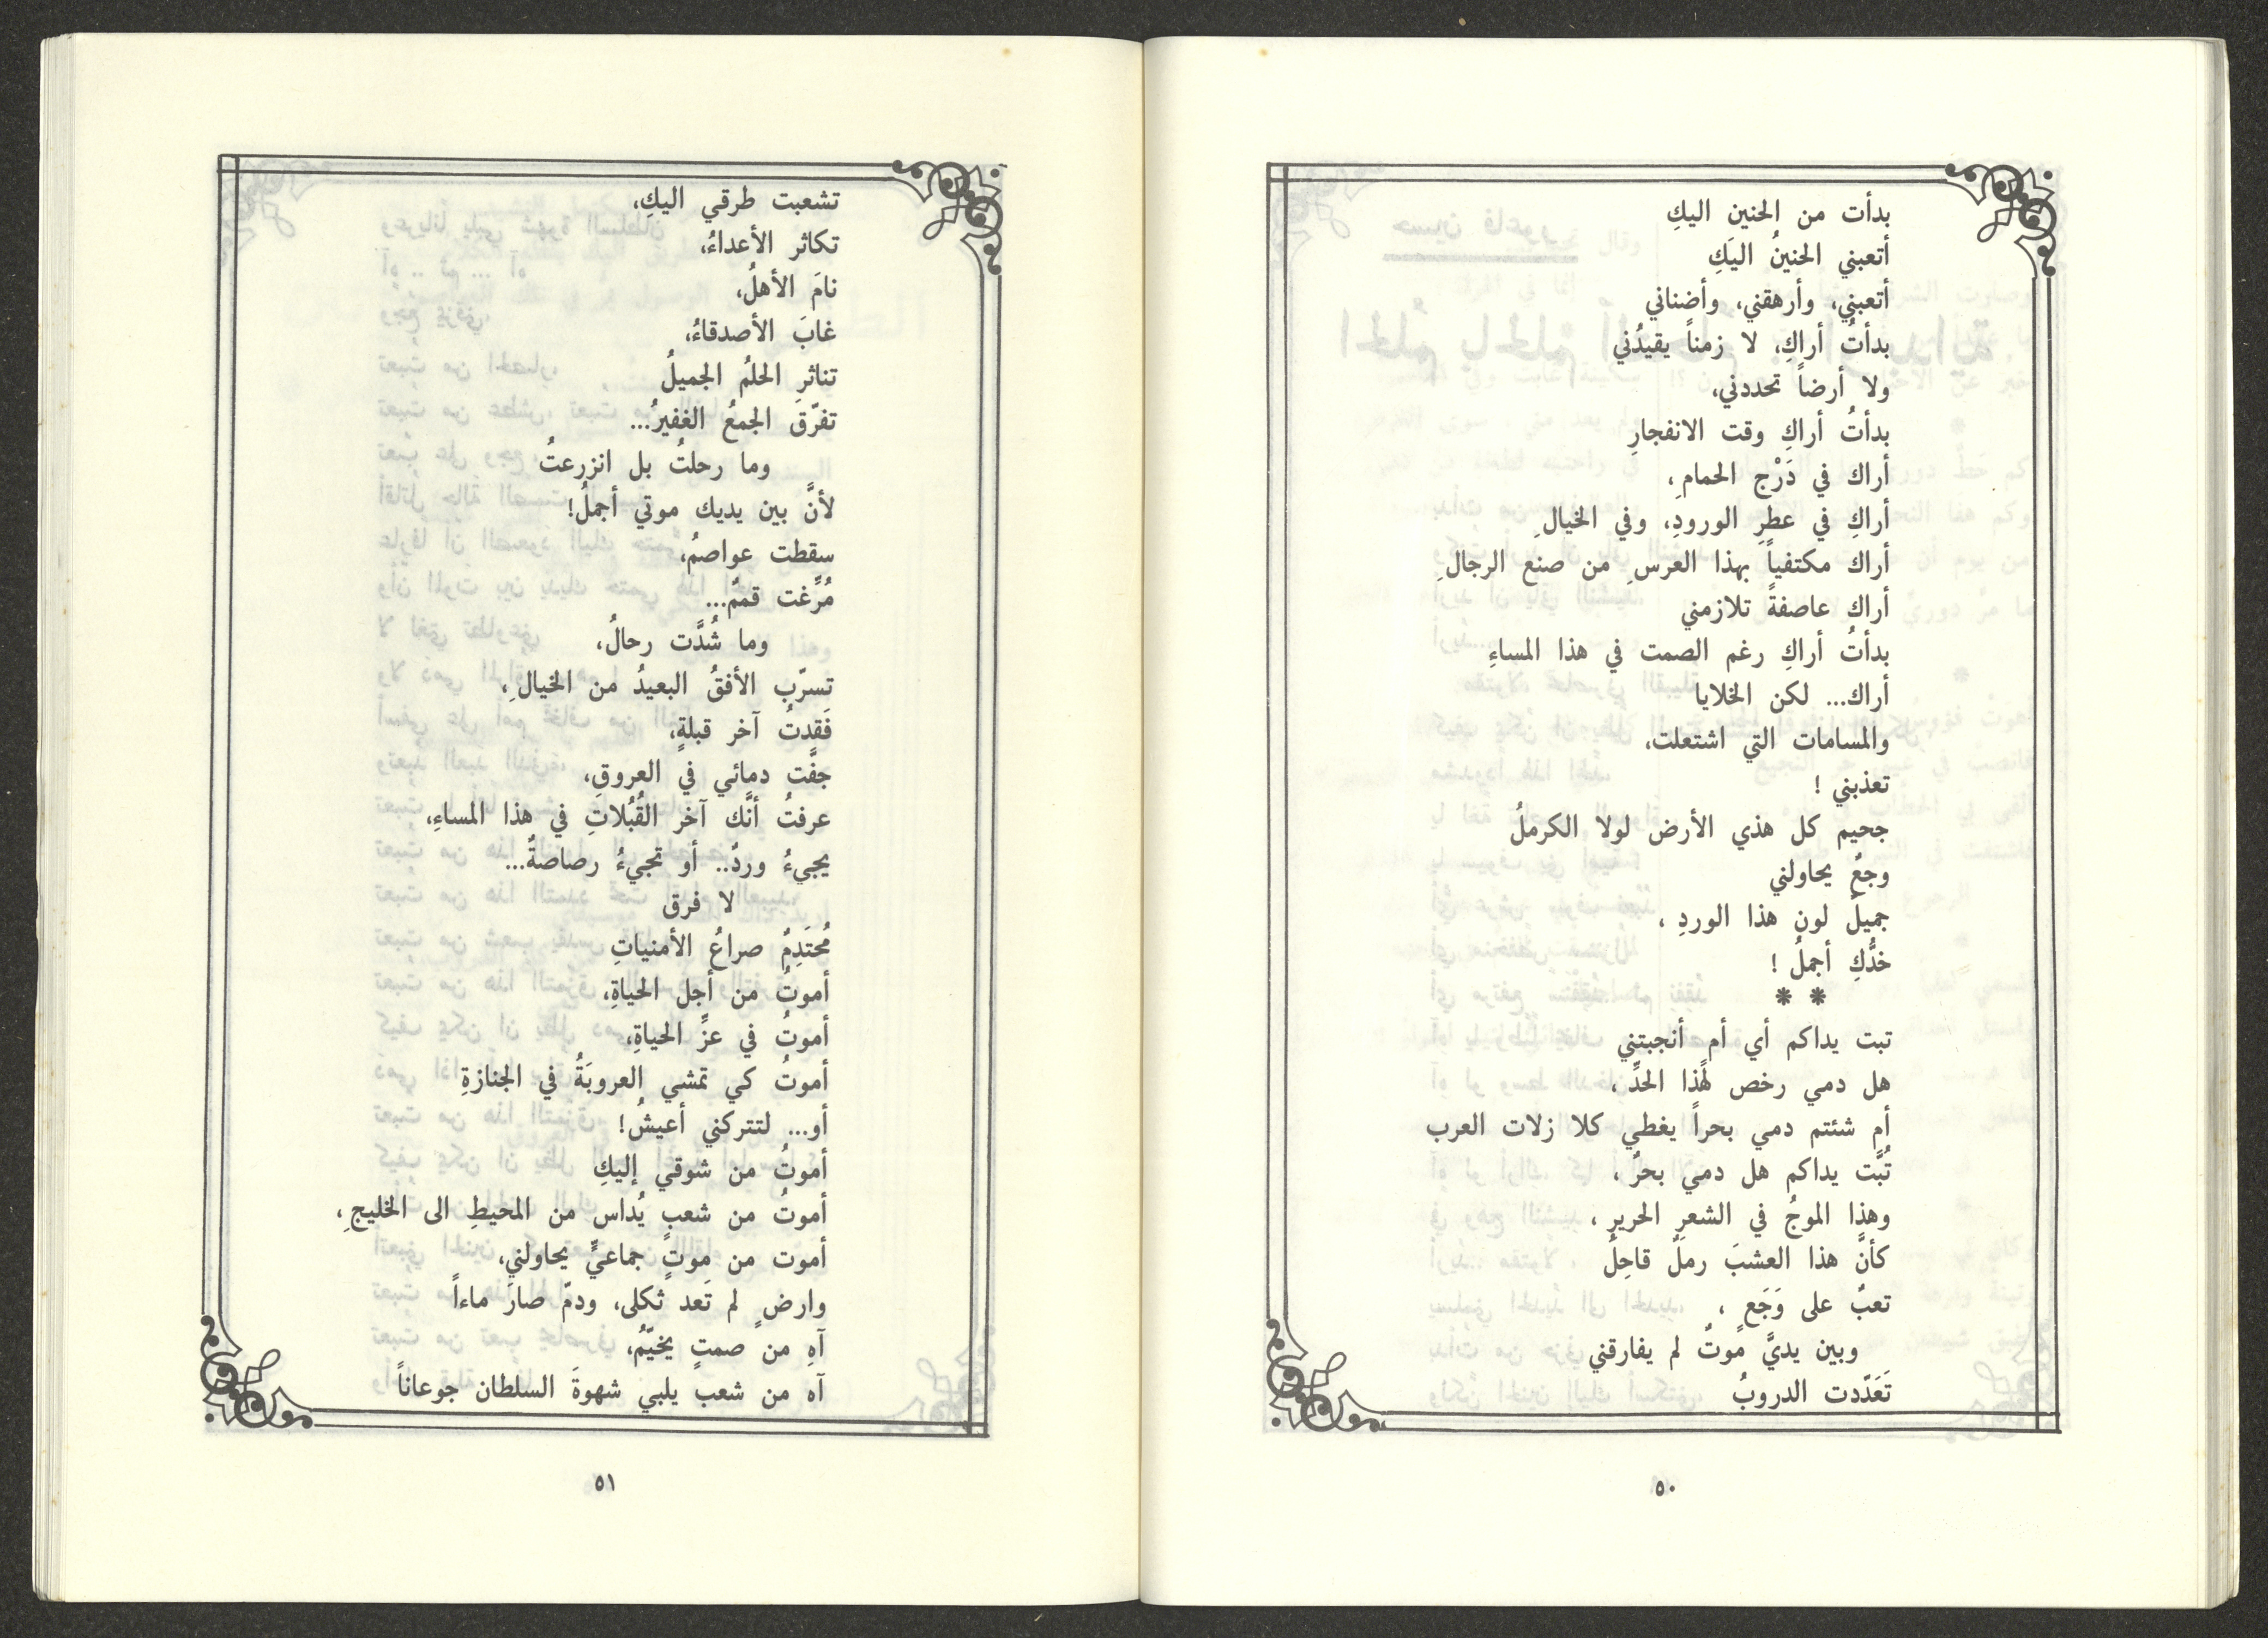 بدأت من الحنين اليكِ
أتعبني الحنينُ اليَكِ
أتعبني، وأرهقني، وأضناني
بدأتُ أراكِ، لا زمناً يقيدُني
ولا أرضاً تحددني،
بدأتُ أراكِ وقت الانفجارِ
أراك في دَرْج الحمامِ،
أراكِ في عطرِ الورودِ، وفي الخيالِ
أراك مكتفياً بهذا العرسِ من صنع الرجالِ
أراك عاصفةً تلازمني
بدأتُ أراكِ رغم الصمت في هذا المساءِ
أراك... لكن الخلايا
والمسامات التي اشتعلت،
تعذبني !
جحيم كل هذي الأرض لولا الكرملُ
وجعٌ يحاولني
جميلٌ لون هذا الوردِ ،
خدُّكِ أجملُ !
* *
تبت يداكم أي أمٍ أنجبتني
هل دمي رخص لهذا الحدِّ ،
أم شئتم دمي بحراً يغطي كلا زلات العرب
تُبَّت يداكم هل دمي بحرٌ ،
وهذا الموجُ في الشعرِ الحريرِ ،
كأنَّ هذا العشبَ رملٌ قاحِلٌ
تعبٌ على وَجَعٍ ،
وبين يديَّ موتٌ لم يفارقني
تَعَدّدت الدروبُ
٥٠
تشعبت طرقي اليكِ،
تكاثر الأعداءُ،
نامَ الأهلُ،
غابَ الأصدقاءُ،
تناثر الحلمُ الجميلُ
تفرّقَ الجمعُ الغفيرُ...
وما رحلتُ بل انزرعتُ
لأنَّ بين يديك موتي أجملُ!
سقطت عواصمُ،
مُرِّغت قممٌ...
وما شُدَّت رحالُ،
تسرّب الأفقُ البعيدُ من الخيالِ،
فَقدتُ آخر قبلةٍ،
جفَّت دمائي في العروقِ،
عرفتُ أنَّك آخر القُبُلاتِ في هذا المساءِ،
يجيءُ وردٌ.. أو تجيءُ رصاصةٌ...
لا فرق
مُحتَدِمٌ صراعُ الأمنياتِ
أموتُ من أجل الحياةِ،
أموتُ في عزِّ الحياةِ،
أموتُ كي تمشي العروبَةُ في الجنازةِ
أو... لتتركني أعيشُ!
أموتُ من شوقي إليكِ
أموتُ من شعبٍ يُداس من المحيطِ الى الخليجِ،
أموت من موتٍ جماعيٍّ يحاولني،
وارضٍ لم تَعد ثكلى، ودمّ صارَ ماءاً
آهِ من صمتٍ يخيّمُ،
آه من شعب يلبي شهوةَ السلطان جوعاناً
٥١